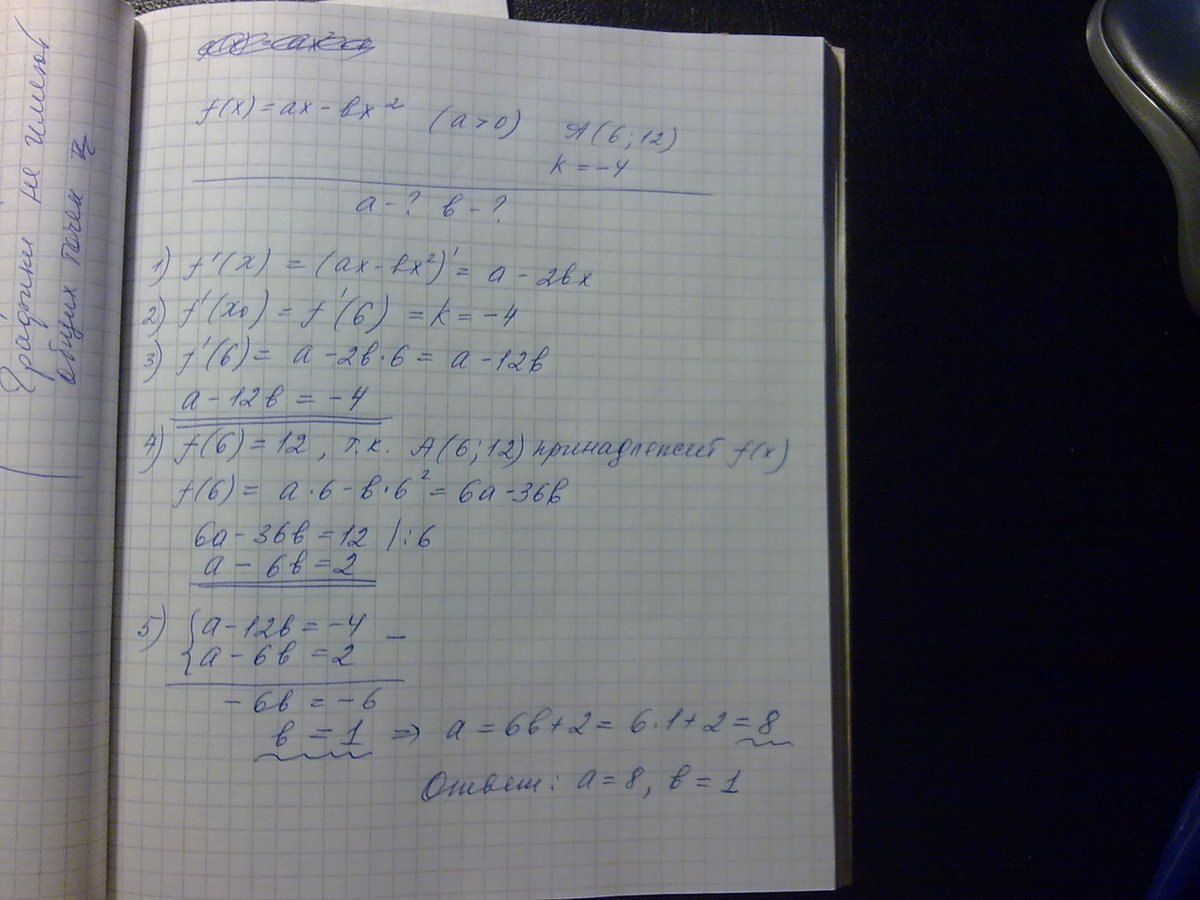 Графики не имеют
общих точек
f(x) = ax - bx² (a > 0) A(6; 12)
k = -4
a - ? b - ?
1) f'(x) = (ax - bx²)' = a - 2bx
2) f'(x₀) = f'(6) = k = -4
3) f'(6) = a - 2b·6 = a - 12b
a - 12b = -4
4) f(6) = 12, т.к. A(6; 12) принадлежит f(x)
f(6) = a·6 - b·6² = 6a - 36b
6a - 36b = 12 |:6
a - 6b = 2
5) { a - 12b = -4 −
{ a - 6b = 2
-6b = -6
b = 1 => a = 6b + 2 = 6·1 + 2 = 8
Ответ: a = 8, b = 1